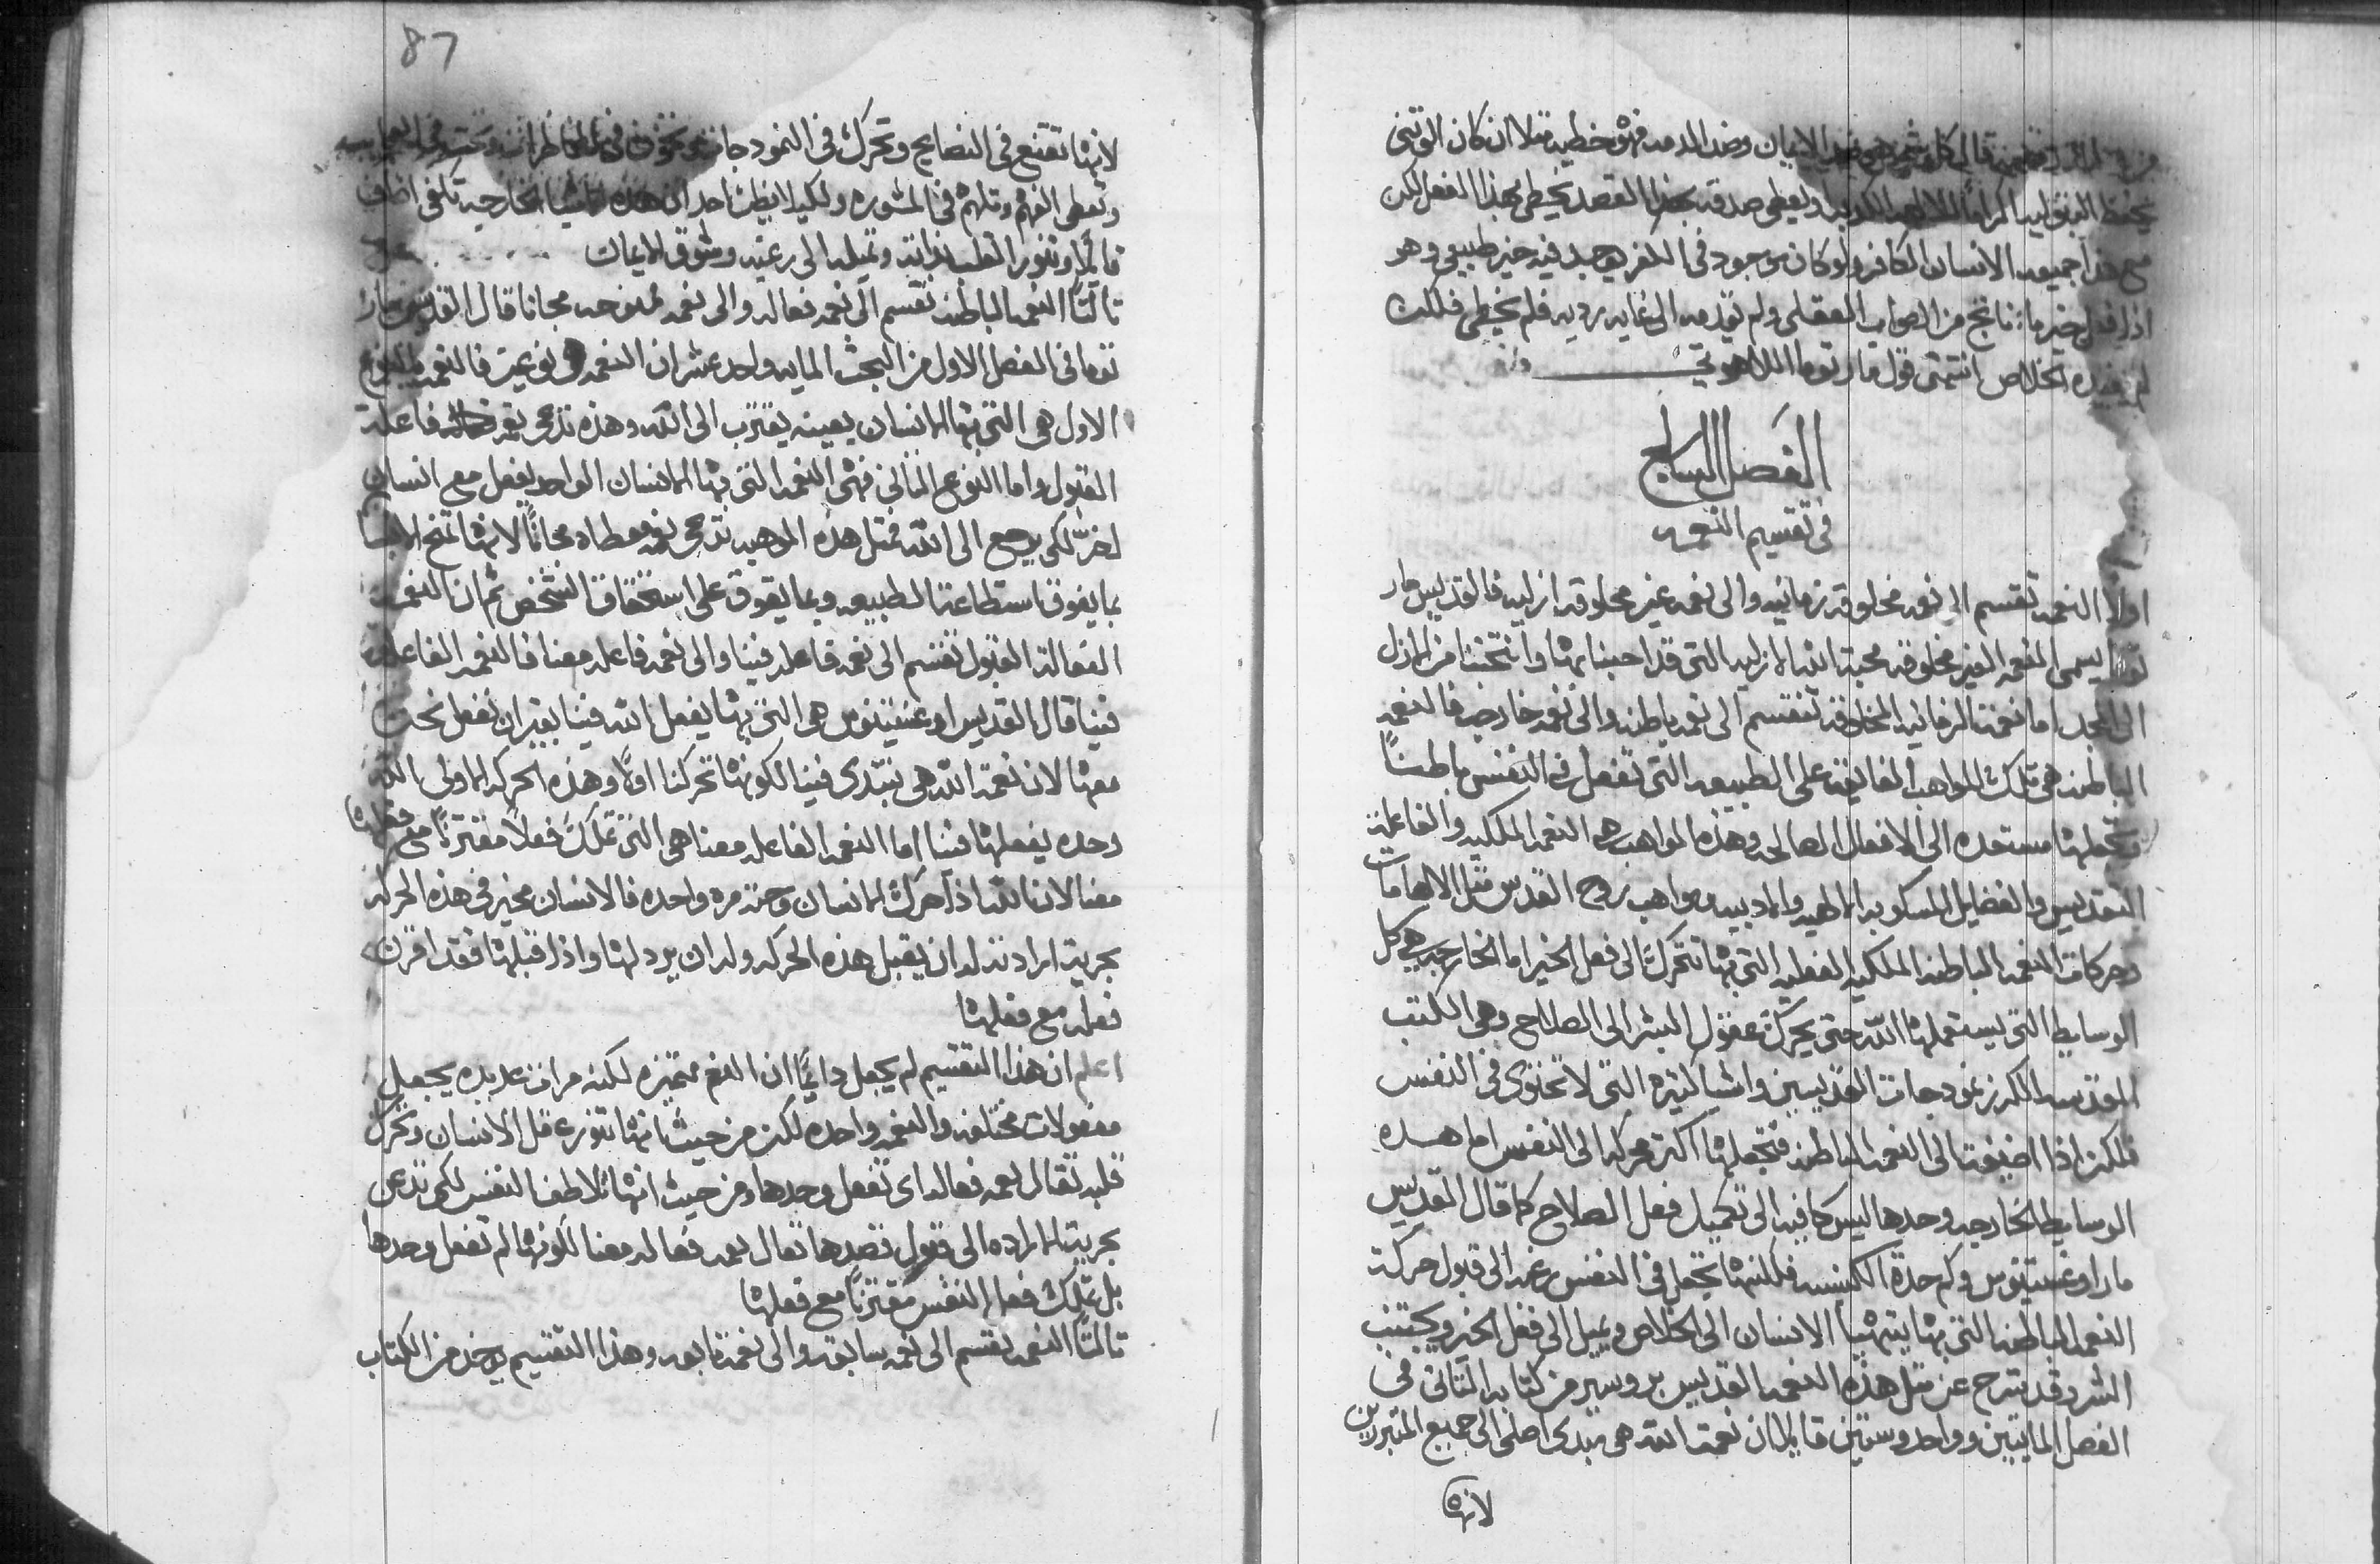 قال كل شي هو ضد الايمان وضد الذمه فهو خطيه مثلا ان كان الوثني
يحفظ البتوليه اكراما للالهه الكدبه او يعطي صدقه بهذا القصد يخطي بهذا الفعل لكن
مع هذا جميعه الانسان الكافر ولو كان موجود في الكفر يوجد فيه خير طبيعي وهو
اذا فعل خير ما ناتج من الصواب العقلي ولم يقدمه الى غايه رديه فلم يخطي فلكن
لم يفيده للخلاص انتهى قول مار توما اللاهوتي
الفصل السابع
في تقسيم النعمه
اولا النعمه تقسم الى نعمه مخلوقه زمانيه والى نعمه غير مخلوقه ازليه فالقديس مار
توما يسمي النعمه الغير مخلوقه محبة الله الازليه التي قد احبنا بها وانتخبنا من الازل
الى المجد اما نعمة الزمانيه المخلوقه تنقسم الى نعمه باطنه والى نعمه خارجه فالنعمه
الباطنه هي تلك المواهب الفايقه على الطبيعه التي تفعل في النفس باطناً
وتجعلها مستعده الى الافعال الصالحه وهذه المواهب هي النعمه الملكيه والفاعلية
التقديس والفضايل المسكوبه الالهيه والادبيه ومواهب روح القدس مثل الالهامات
وحركات النعمه الباطنه الملكيه الفعليه التي بها نتحرك الى فعل الخير اما الخارجيه هي كل
الوسايط التي يستعملها الله حتى يحرك عقول البشر الى الصلاح وهي الكتب
المقدسه الكرز نمودجات القديسين واشيا كثيره التي لا تحتوي في النفس
فلكن اذا اضيفت الى النعمه الباطنه فتجعلها اكثر محركه الى النفس اما هذه
الوسايط الخارجيه وحدها ليس كافيه الى تكميل فعل الصلاح كما قال القديس
مار اوغستينوس وكم حدة الكنيسه فلكنها تجعل في النفس رغبه الى قبول حركة
النعمه الباطنه التي بها يتهيا الانسان الى الخلاص ويميل الى فعل الخير ويجتنب
الشر وقد يشرح عن مثل هذه النعمه القديس بروسير من كتابه الثاني في
الفصل المايتين وواحد وستين قايلا ان نعمة الله هي مبدى اصلي الى جميع المتبررين
لانها
87
لانها تقنع في النصايح وتحرك في النمودجات وتخوف في المخاطر
وتعطي الفهم وتلهم في المشوره ولكيلا يظن احد ان هذه الاشيا الخارجيه تكفي اضاف
قايلا وتنور القلب بذاته وتميله الى رغبه وشوق الايمان
ثالثاً النعمه الباطنه تقسم الى نعمه فعاله والى نعمه ممنوحه مجانا قال القديس مار
توما في الفصل الاول من البحث المايه واحد عشر ان النعمه نوعين فالنعمه النوع
الاول هي التي بها الانسان بعينه يقترب الى الله وهذه تدعي نعمه فاعلة
القبول واما النوع الثاني فهي النعمه التي بها الانسان الواحد يفعل مع انسان
اخر لكي يرجع الى الله فمثل هذه الموهبه تدعي نعمه معطاه مجاناً لانها تمنح الانسان
بما يفوق استطاعة الطبيعه وبما يفوق على استحقاق الشخص ثم ان النعمة
الفعالة القبول تقسم الى نعمه فاعله فينا والى نعمه فاعله معنا فالنعمه الفاعله
فينا قال القديس اوغستينوس هي التي بها يفعل الله فينا بغير ان نفعل نحن
معها لان نعمة الله هي تبتدي فينا لكونها تحركنا اولا وهذه الحركه الاولى الله
وحده يفعلها فينا اما النعمه الفاعله معنا هي التي تملك فعلاً مقترناً مع فعلها
معنا لان الله اذا حرك الانسان وحثه مره واحده فالانسان مخير في هذه الحركه
بحرية ارادته له ان يقبل هذه الحركه وله ان يردلها واذا قبلها فقد اقرن
فعله مع فعلها
اعلم ان هذا التقسيم لم يجعل دايماً ان النعم متميزه لكنه مرات عديده يجعل
مفعولات مختلفه والنعمه واحده لكن من حيث انها تنور عقل الانسان وتحرك
قلبه تقال نعمه فعاله اي تفعل وحدها ومن حيث انها تلاطف النفس لكي تدعن
بحرية الاراده الى قبول قصدها تقال نعمه فعاله معنا لكونها لم تفعل وحدها
بل تملك فعل النفس مقترناً مع فعلها
ثالثاً النعمه تقسم الى نعمه سابقه والى نعمه تابعه وهذا التقسيم يوخذ من الكتاب